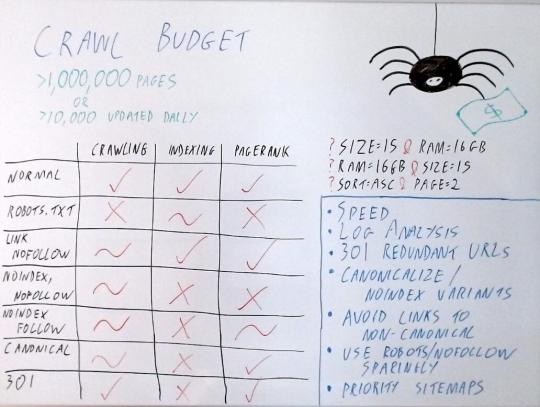 CRAWL BUDGET
>1,000,000 PAGES
OR
>10,000 UPDATED DAILY
$
CRAWLING INDEXING PAGERANK
NORMAL ✓ ✓ ✓
ROBOTS.TXT ✗ ~ ✗
LINK
NOFOLLOW ~ ✓ ✓
NOINDEX,
NOFOLLOW ~ ✗ ✗
NOINDEX
FOLLOW ~ ✗ ~
CANONICAL ~ ✗ ✓
301 ✓ ✗ ✓
?SIZE=15 & RAM=16GB
?RAM=16GB & SIZE=15
?SORT=ASC & PAGE=2
• SPEED
• LOG ANALYSIS
• 301 REDUNDANT URLS
• CANONICALIZE/
NOINDEX VARIANTS
• AVOID LINKS TO
NON-CANONICAL
• USE ROBOTS/NOFOLLOW
SPARINGLY
• PRIORITY SITEMAPS